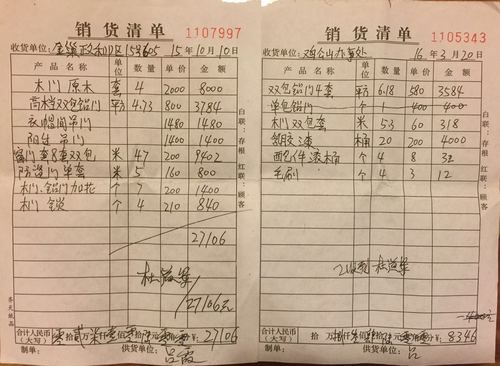 销货清单
1107997
收货单位:
15年10月10日
产品名称 单位 数量 单价 金额
木门 原木 套 4 2000 8000
双包铝门 平方 4.73 800 3784
衣帽间吊门 1480 1480
阳台吊门 1400 1400
双包 米 47 200 9402
防盗门单套 米 5 160 800
木门.铝门加花 个 7 200 1400
木门锁 个 4 210 840
27106
27106元
合计人民币(大写) 拾贰万柒仟壹佰零拾陆元零角零分 ¥: 27106
制单: 供货单位:
白联:存根 红联:顾客
销货清单
1105343
收货单位: 鸡公山办事处
16年3月20日
产品名称 单位 数量 单价 金额
双包铝门 平方 6.18 580 3584
单包铝门 个 1 400 400
木门双包套 米 5.3 60 318
漆 桶 20 200 4000
漆桶 个 4 8 32
毛刷 个 4 3 12
已收到
合计人民币(大写) 拾 万 仟 佰 拾 元 角 分 ¥: 8346
制单: 供货单位:
白联:存根 红联:顾客